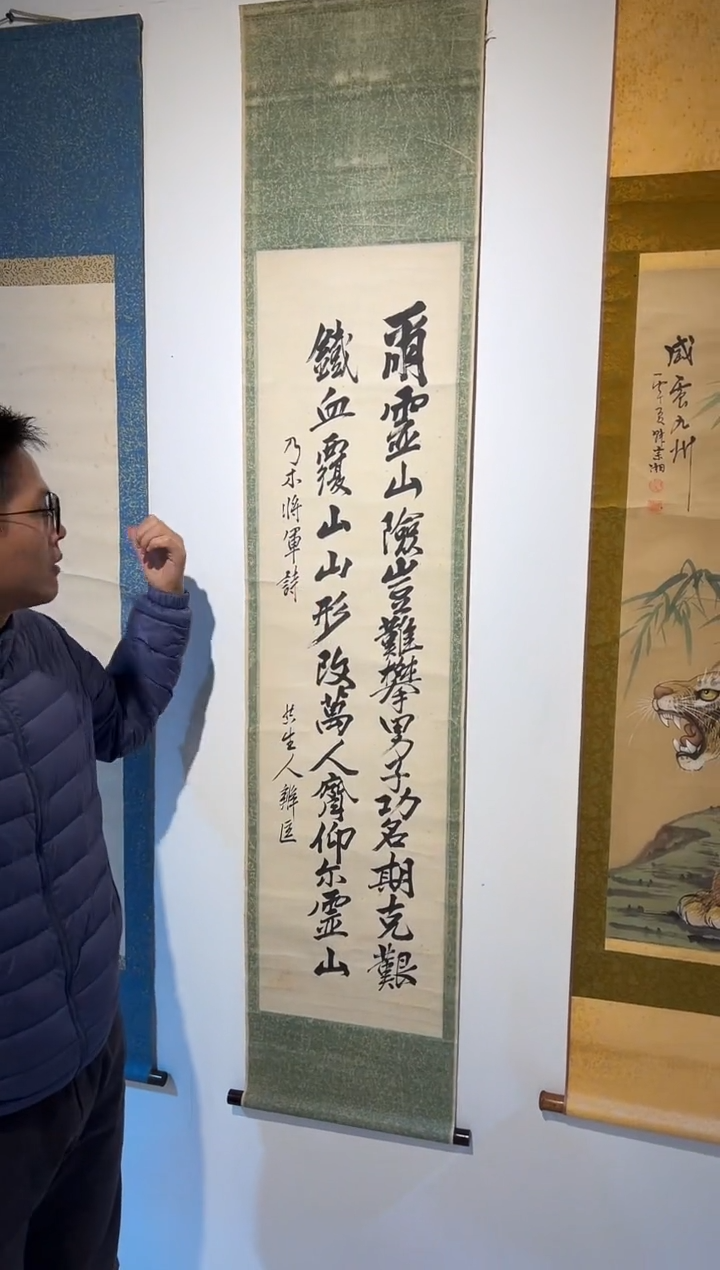 爾靈山險豈難攀男子功名期克艱
鐵血覆山山形改萬人齊仰尔靈山
乃木將軍詩
生人
威震九州